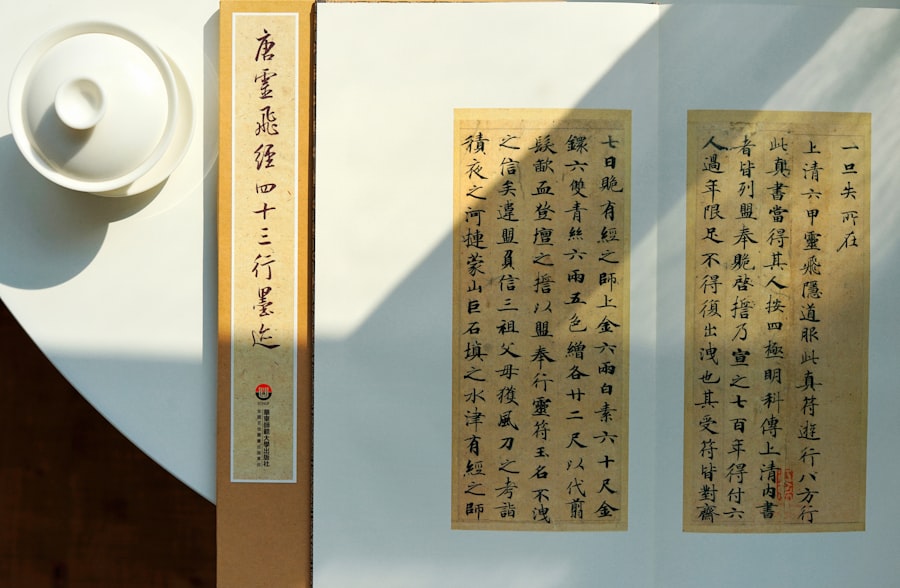 唐靈飛經四十三行墨迹
華東師範大學出版社
一旦失所在
上清六甲靈飛隱道服此真符遊行八方行
此真書當得其人按四極明科傳上清內書
者皆列盟奉貺啓誓乃宣之七百年得付六
人過年限足不得復出洩也其受符皆對齋
七日貺有經之師上金六兩白素六十尺金
鐶六雙青絲六兩五色繒各廿二尺以代翦
髮歃血登壇之誓以盟奉行靈符玉名不洩
之信矣違盟負信三祖父母獲風刀之考詣
積夜之河摙蒙山巨石填之水津有經之師